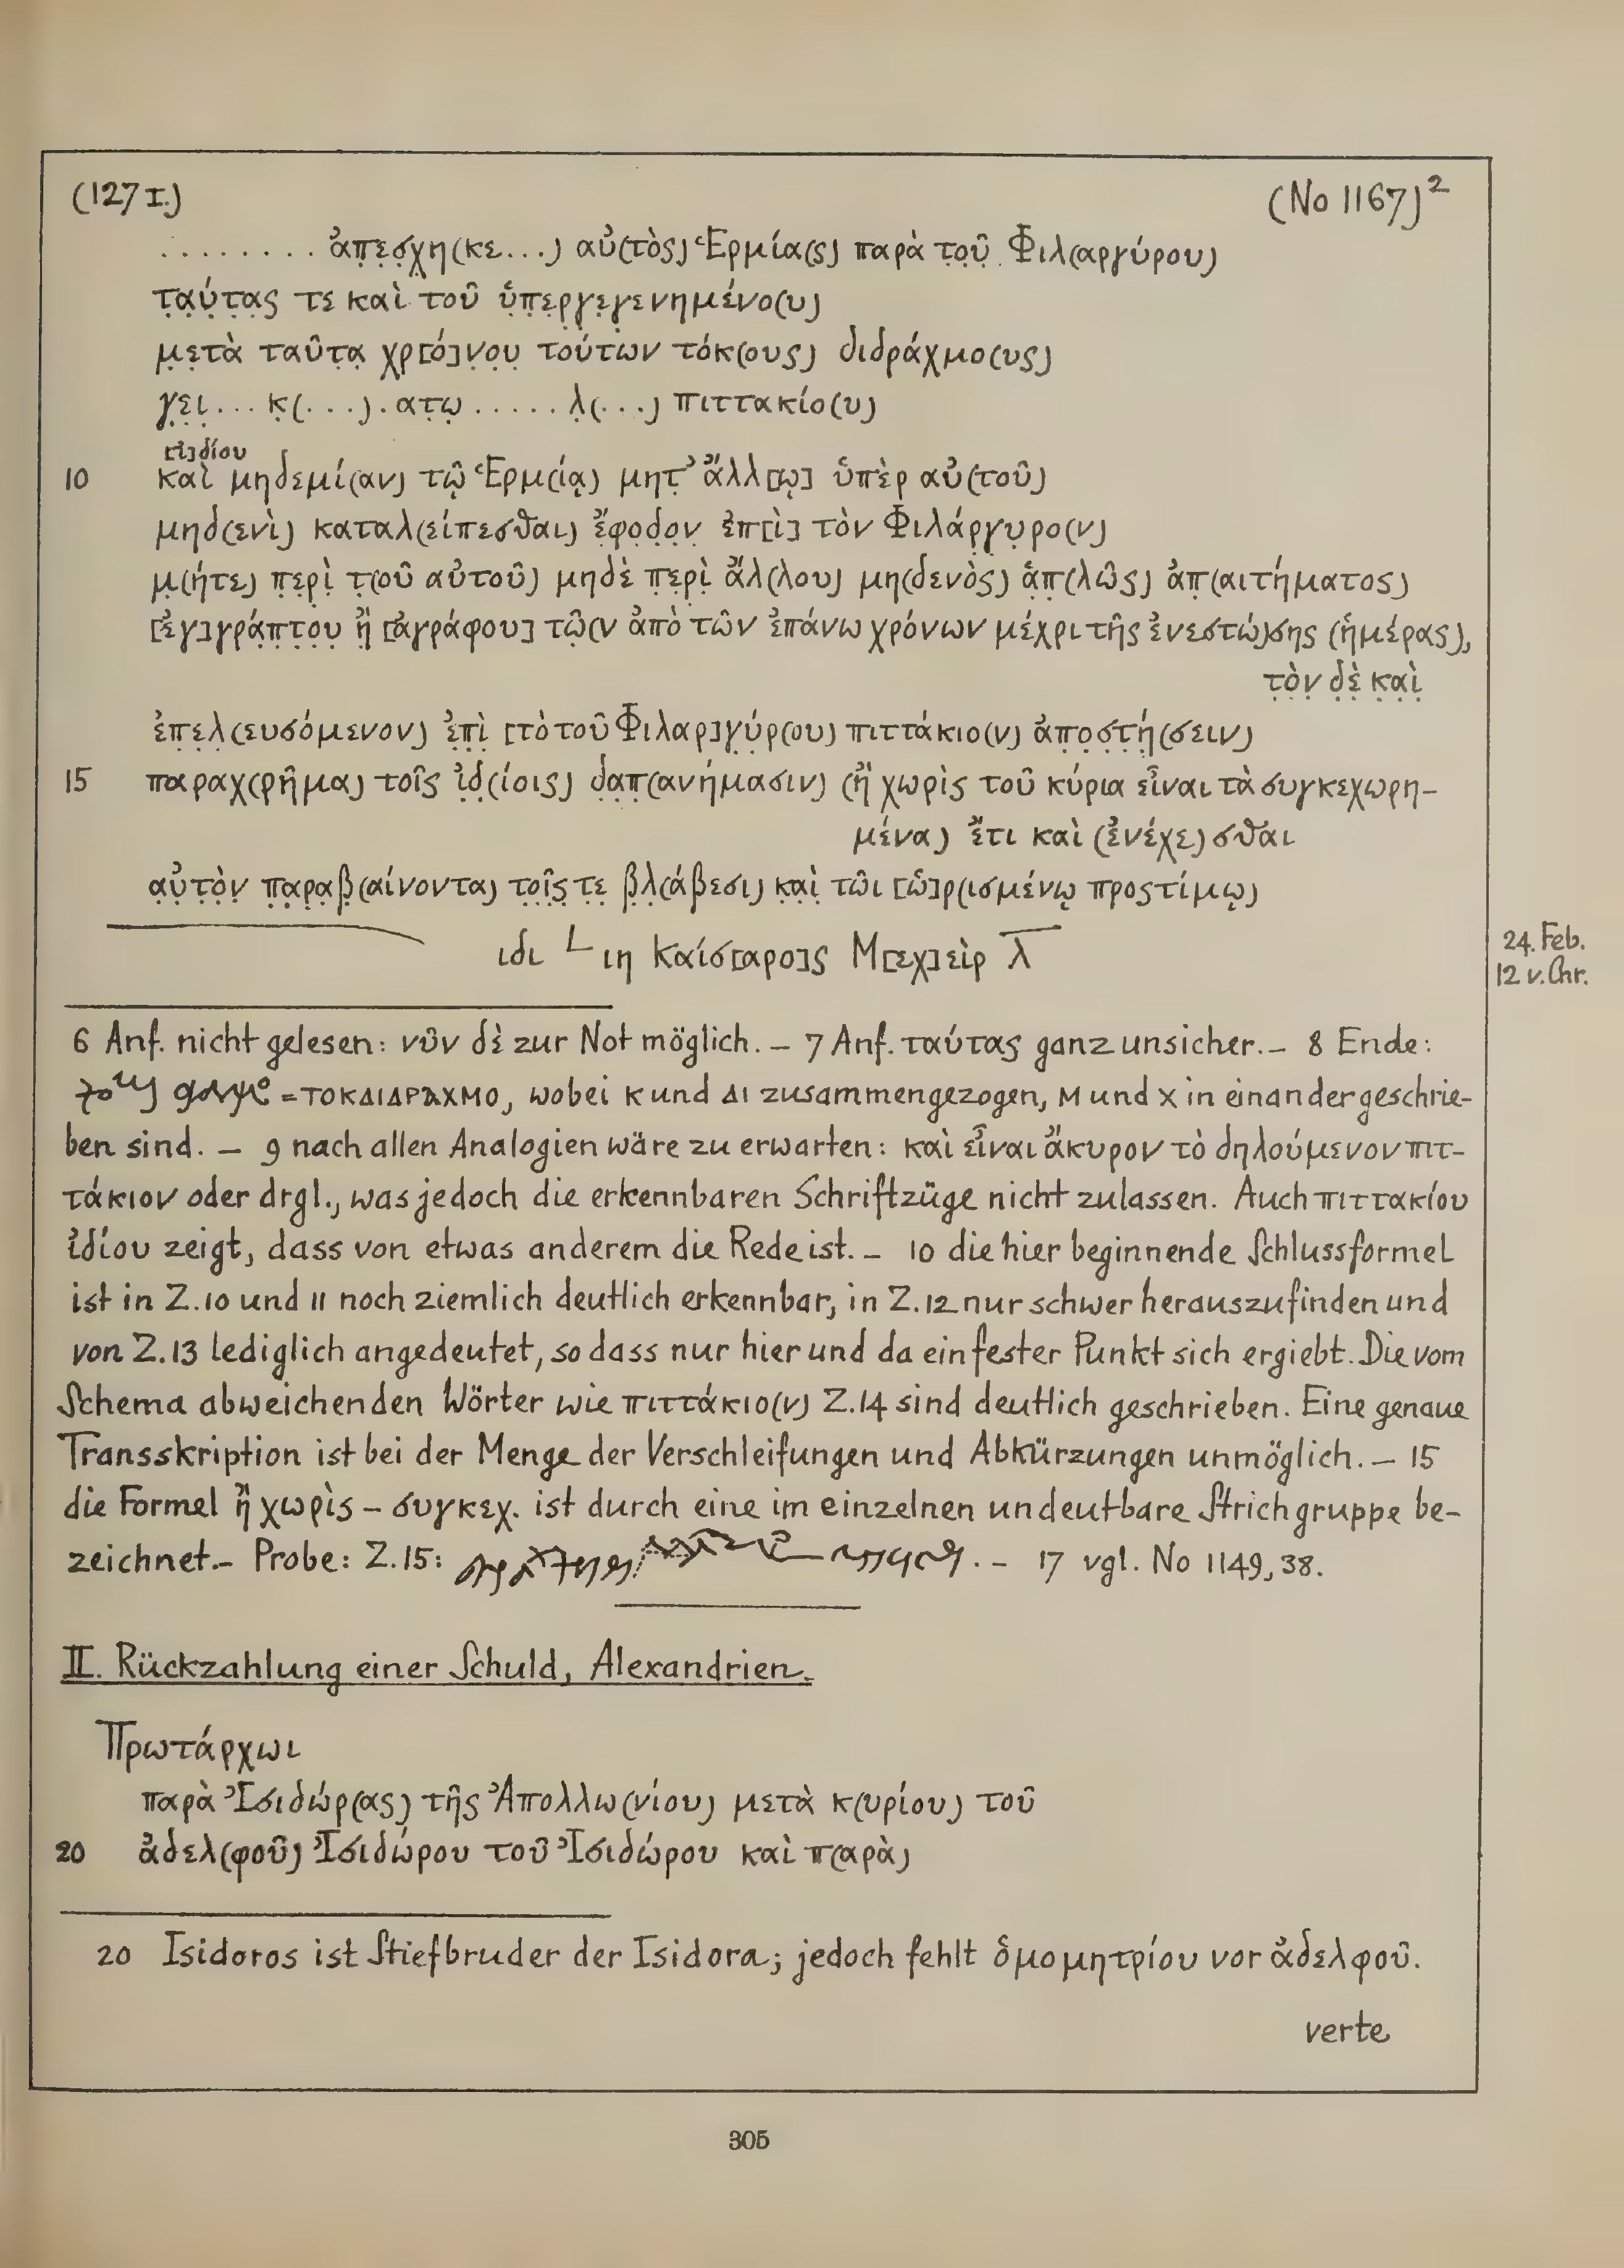 (127 I.) (No 1167)²
........ ἀπεσχη(κε...) αὐ(τὸς) Ἑρμία(ς) παρὰ τοῦ Φιλ(αργύρου)
ταύτας τε καὶ τοῦ ὑπεργεγενημένο(υ)
μετὰ ταῦτα χρ[ό]νου τούτων τόκ(ους) διδράχμο(υς)
γει... κ(...).ατω.....λ(...) πιττακίο(υ)
[ἰ]δίου
10 καὶ μηδεμί(αν) τῷ Ἑρμ(ίᾳ) μητ' ἄλλ[ῳ] ὑπὲρ αὐ(τοῦ)
μηδ(ενὶ) καταλ(είπεσθαι) ἔφοδον ἐπ[ὶ] τὸν Φιλάργυρο(ν)
μ(ήτε) περὶ τ(οῦ αὐτοῦ) μηδὲ περὶ ἄλ(λου) μη(δενὸς) ἁπ(λῶς) ἀπ(αιτήματος)
[ἐγ]γράπτου ἢ [ἀγράφου] τῶ(ν ἀπὸ τῶν ἐπάνω χρόνων μέχρι τῆς ἐνεστώ)σης (ἡμέρας),
τὸν δὲ καὶ
ἐπελ(ευσόμενον) ἐπὶ [τὸ τοῦ Φιλαρ]γύρ(ου) πιττάκιο(ν) ἀποστή(σειν)
15 παραχ(ρῆμα) τοῖς ἰδ(ίοις) δαπ(ανήμασιν) (ἢ χωρὶς τοῦ κύρια εἶναι τὰ συγκεχωρη-
μένα) ἔτι καὶ (ἐνέχε)σθαι
αὐτὸν παραβ(αίνοντα) τοῖς τε βλ(άβεσι) καὶ τῶι [ὡ]ρ(ισμένῳ προστίμῳ)
ιδι L ιη Καίσ[αρο]ς Μ[εχ]εὶρ λ̅
24. Feb.
12 v. Chr.
6 Anf. nicht gelesen: νῦν δὲ zur Not möglich. – 7 Anf. ταύτας ganz unsicher. – 8 Ende:
= ΤΟΚΔΙΔΡΑΧΜΟ, wobei Κ und ΔΙ zusammengezogen, Μ und Χ in einander geschrie-
ben sind. – 9 nach allen Analogien wäre zu erwarten: καὶ εἶναι ἄκυρον τὸ δηλούμενον πιτ-
τάκιον oder drgl., was jedoch die erkennbaren Schriftzüge nicht zulassen. Auch πιττακίου
ἰδίου zeigt, dass von etwas anderem die Rede ist. – 10 die hier beginnende Schlussformel
ist in Z. 10 und 11 noch ziemlich deutlich erkennbar, in Z. 12 nur schwer herauszufinden und
von Z. 13 lediglich angedeutet, so dass nur hier und da ein fester Punkt sich ergiebt. Die vom
Schema abweichenden Wörter wie πιττάκιο(ν) Z. 14 sind deutlich geschrieben. Eine genaue
Transskription ist bei der Menge der Verschleifungen und Abkürzungen unmöglich. – 15
die Formel ἢ χωρὶς – συγκεχ. ist durch eine im einzelnen undeutbare Strichgruppe be-
zeichnet. – Probe: Z. 15: . – 17 vgl. No 1149, 38.
II. Rückzahlung einer Schuld, Alexandrien.
Πρωτάρχωι
παρὰ Ἰσιδώρ(ας) τῆς Ἀπολλω(νίου) μετὰ κ(υρίου) τοῦ
20 ἀδελ(φοῦ) Ἰσιδώρου τοῦ Ἰσιδώρου καὶ π(αρὰ)
20 Isidoros ist Stiefbruder der Isidora; jedoch fehlt ὁμομητρίου vor ἀδελφοῦ.
verte
305